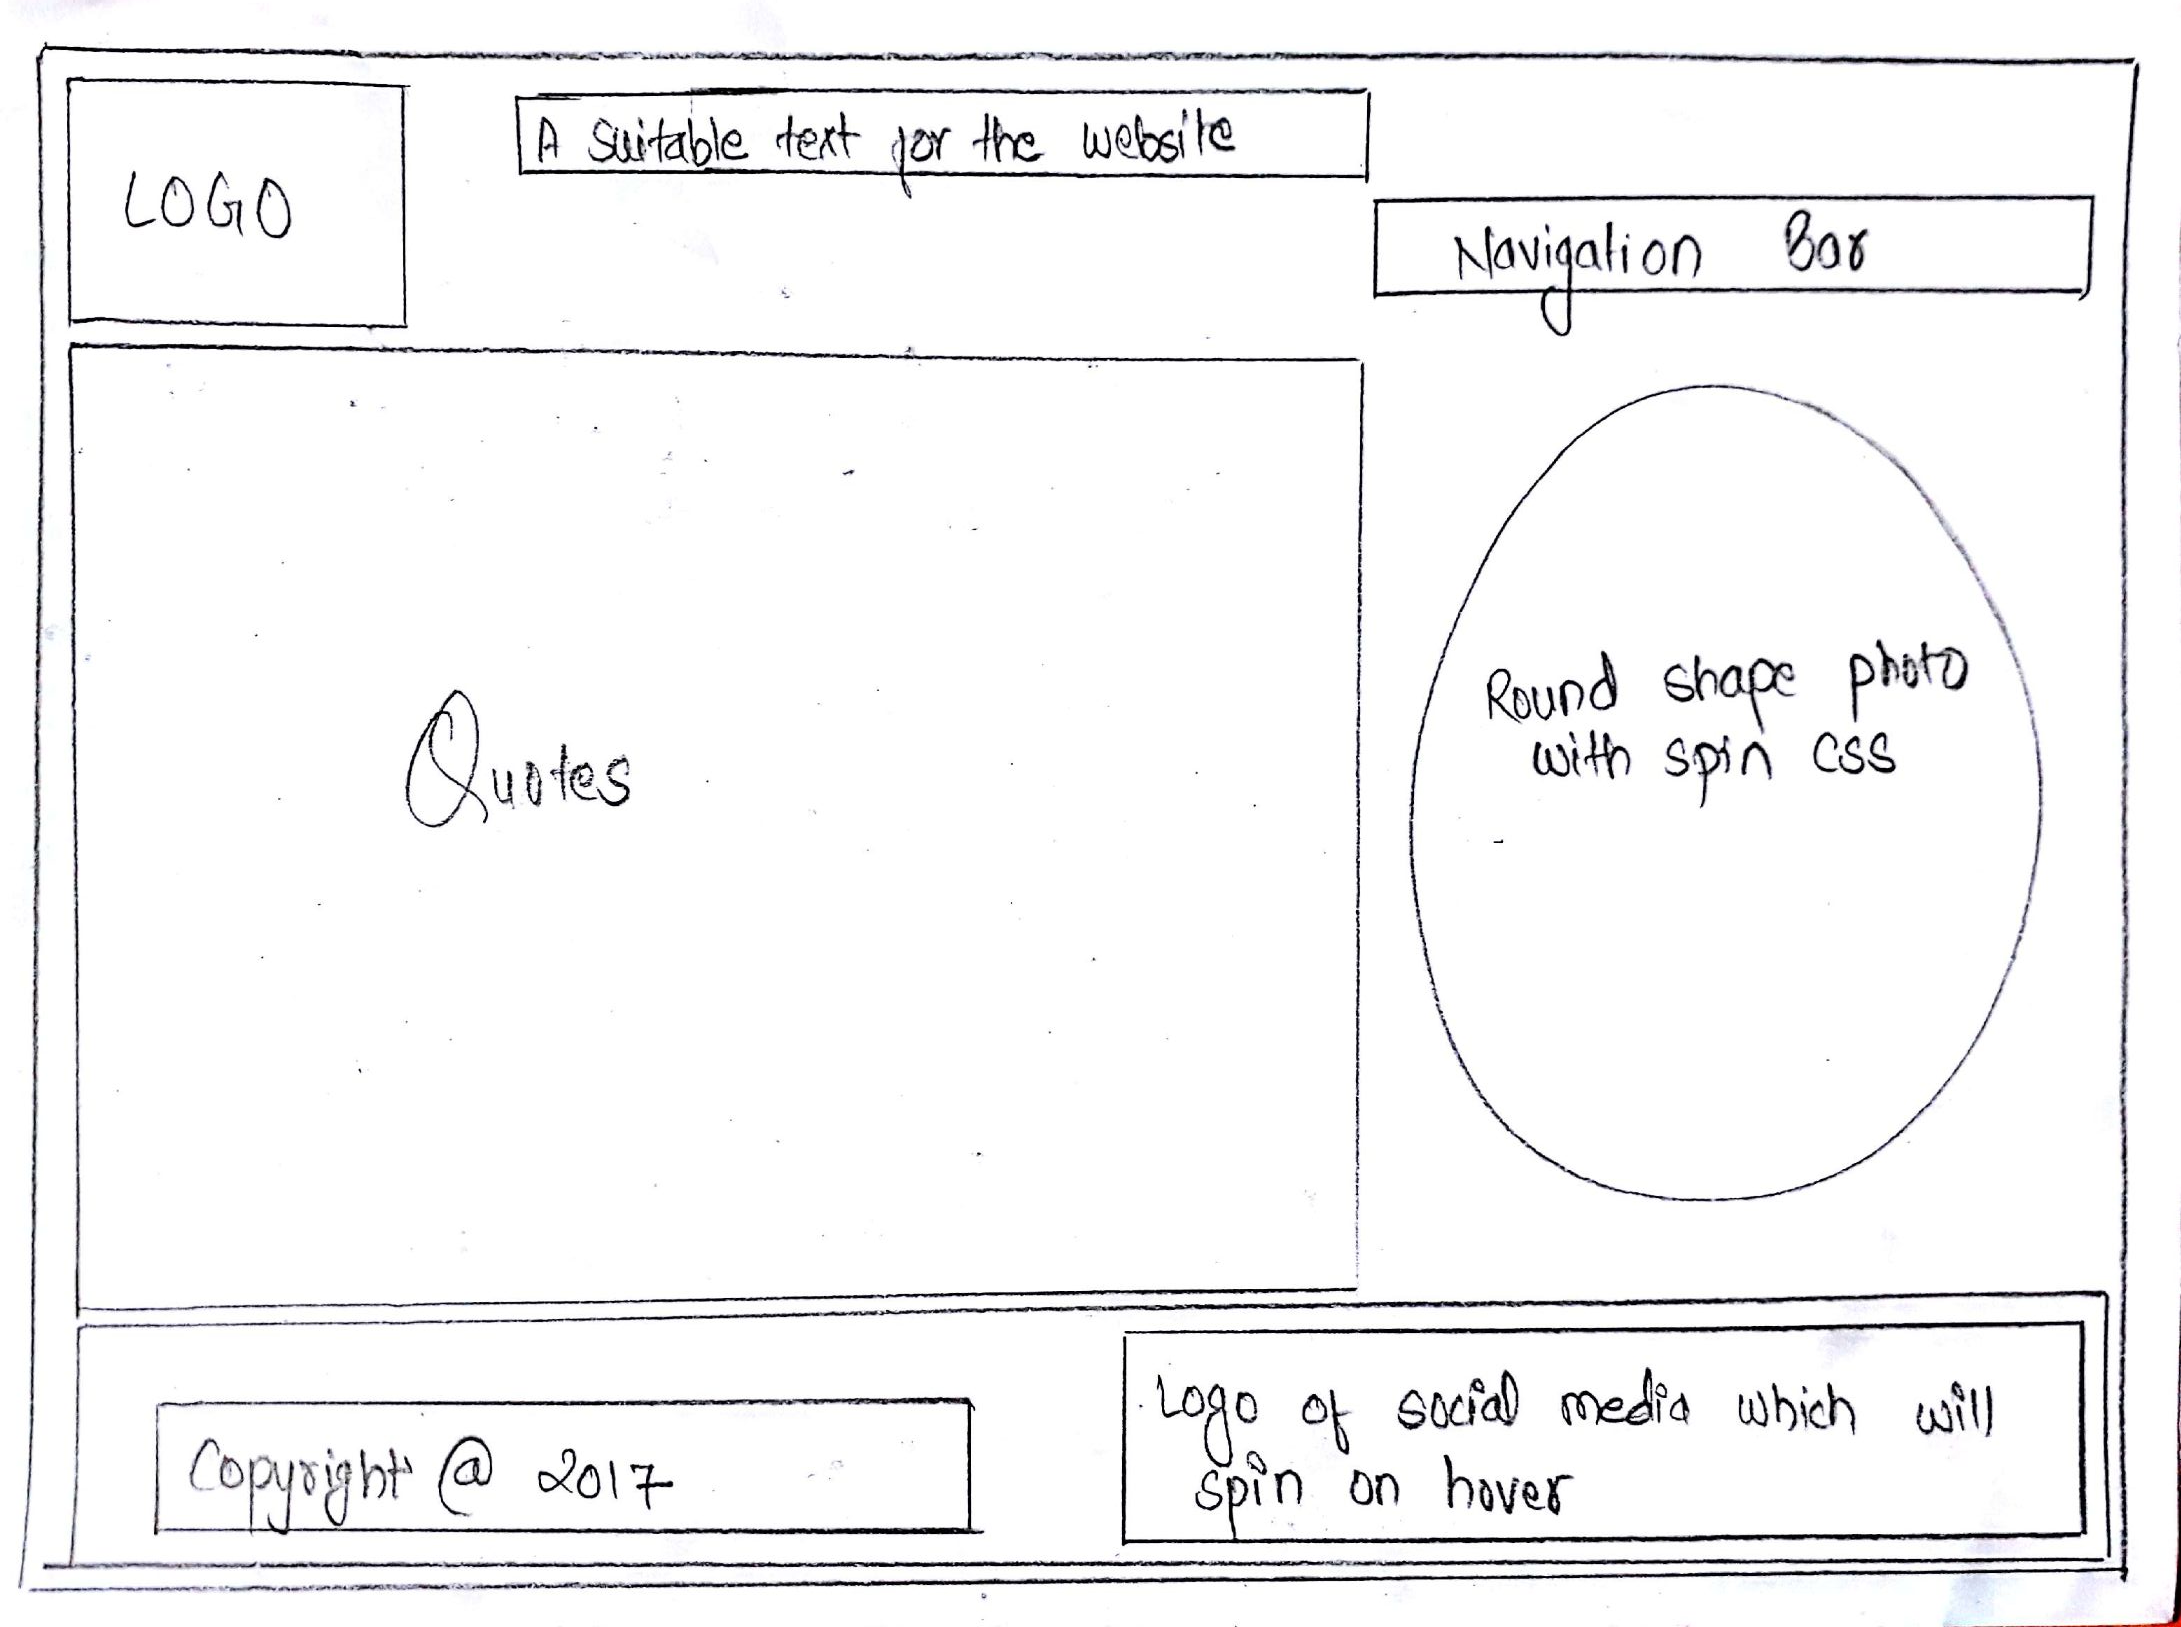 LOGO
A Suitable text for the website
Navigation Bar
Quotes
Round shape photo
with spin css
Copyright @ 2017
Logo of social media which will
spin on hover